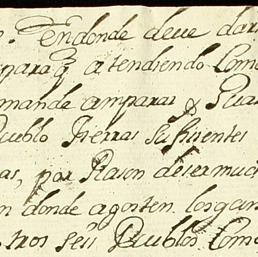 . En donde deve dar
para q atendiendo Com
mande amparar y Guar
Pueblo tierras Sufisientes
as, por Rason de ser much
n donde agosten los gan
tros seis Pueblos Com